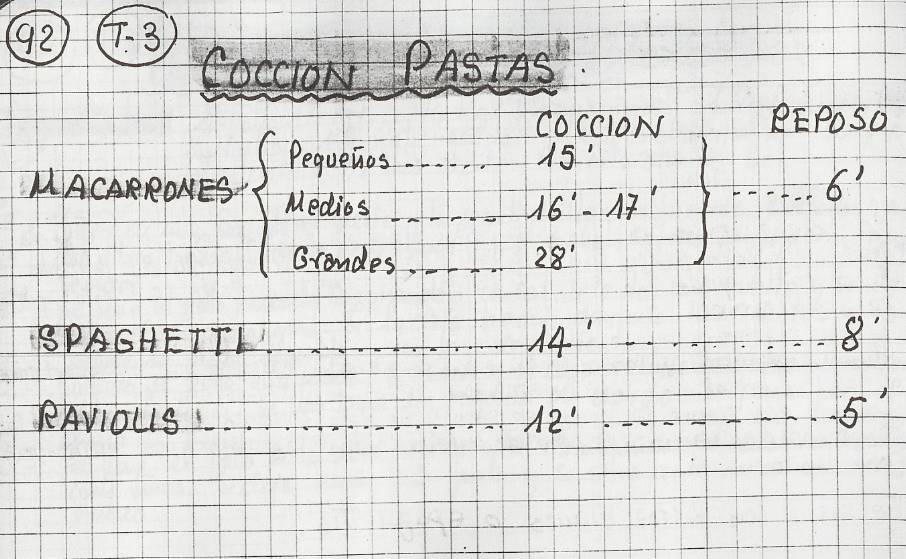 92 T-3
COCCION PASTAS.
COCCION REPOSO
Pequeños ...... 15'
MACARRONES Medios ------ 16' - 17' ----... 6'
Grandes ------ 28'
SPAGHETTI ................ 14' ------------ 8'
RAVIOLIS .................. 12' ------------ 5'